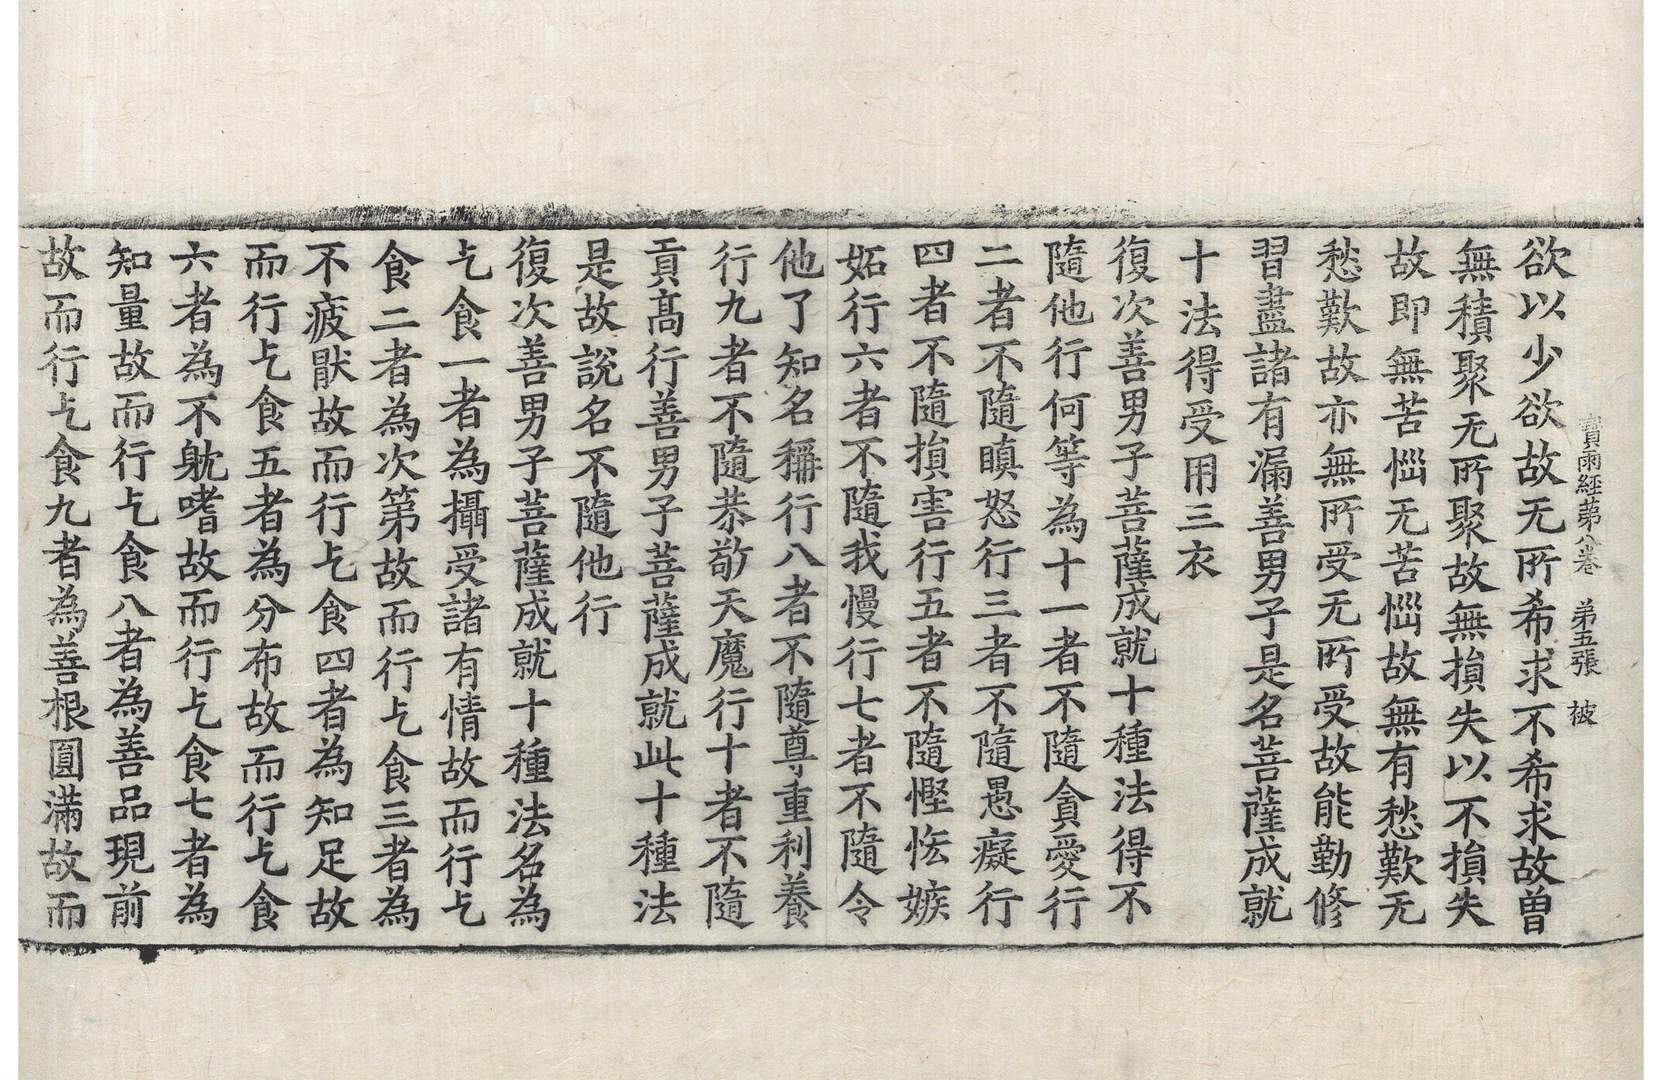 寶雨經第八卷 第五張 被
欲以少欲故无所希求不希求故曾
無積聚无所聚故無損失以不損失
故即無苦惱无苦惱故無有愁歎无
愁歎故亦無所受无所受故能勤修
習盡諸有漏善男子是名菩薩成就
十法得受用三衣
復次善男子菩薩成就十種法得不
隨他行何等為十一者不隨貪愛行
二者不隨瞋怒行三者不隨愚癡行
四者不隨損害行五者不隨慳恡嫉
妬行六者不隨我慢行七者不隨令
他了知名稱行八者不隨尊重利養
行九者不隨恭敬天魔行十者不隨
貢髙行善男子菩薩成就此十種法
是故說名不隨他行
復次善男子菩薩成就十種法名為
乞食一者為攝受諸有情故而行乞
食二者為次第故而行乞食三者為
不疲猒故而行乞食四者為知足故
而行乞食五者為分布故而行乞食
六者為不躭嗜故而行乞食七者為
知量故而行乞食八者為善品現前
故而行乞食九者為善根圓滿故而